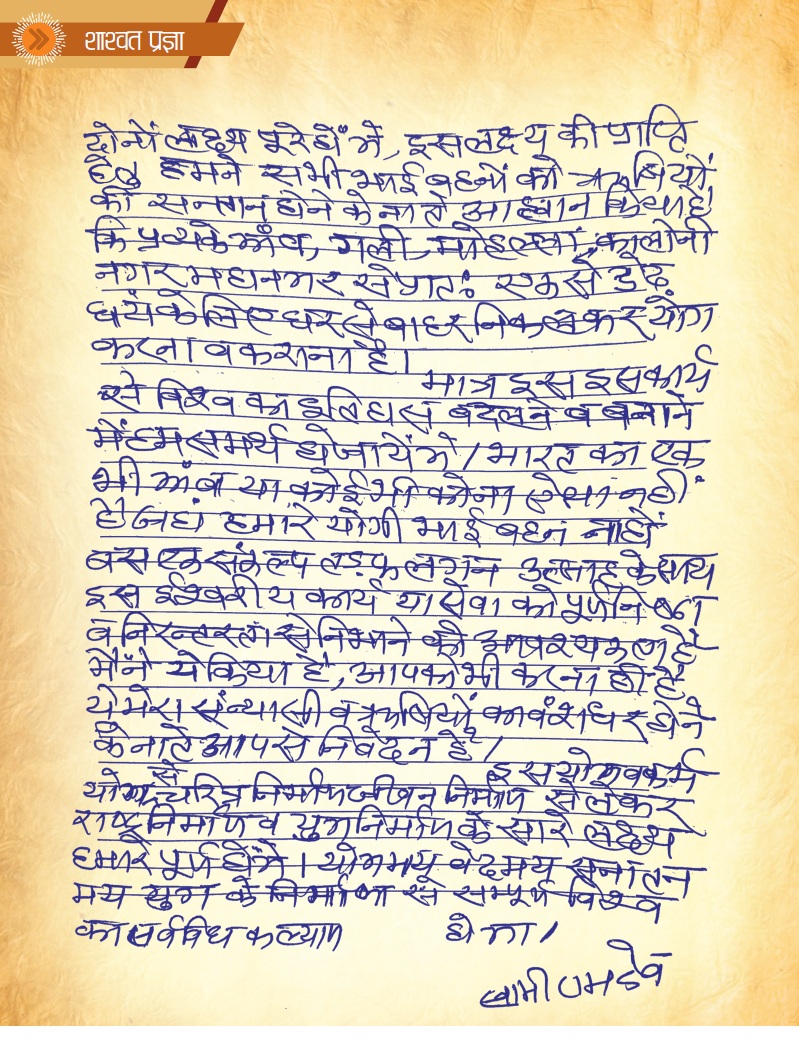 शाश्वत प्रज्ञा
दोनों लक्ष्य पूरे होंगे, इस लक्ष्य की प्राप्ति
हेतु हमने सभी भाई बहनों को ऋषियों
की सन्तान होने के नाते आह्वान किया है
कि प्रत्येक गाँव, गली, मोहल्ला, कालोनी
नगर, महानगर में प्रातः एक से डेढ़
घंटे के लिए घर से बाहर निकलकर योग
करना व कराना है।
मात्र इस इस कार्य
से विश्व का इतिहास बदलने व बनाने
में हम समर्थ हो जायेंगे। भारत का एक
भी गाँव या कोई भी कोना ऐसा नहीं
है जहां हमारे योगी भाई बहन ना हों
बस एक संकल्प तड़फ लगन उत्साह के साथ
इस ईश्वरीय कार्य या सेवा को पूर्ण निष्ठा
व निरन्तरता से निभाने की आवश्यकता है
मैंने ये किया है, आपको भी करना ही है
ये मेरा संन्यासी व ऋषियों का वंशधर होने
के नाते आपसे निवेदन है।
इस योग व कर्म
योग से चरित्र निर्माण जीवन निर्माण से लेकर
राष्ट्र निर्माण व युग निर्माण के सारे लक्ष्य
हमारे पूर्ण होंगे। योगमय वेदमय सनातन
मय युग के निर्माण से सम्पूर्ण विश्व
का सर्वविध कल्याण होगा।
स्वामी रामदेव